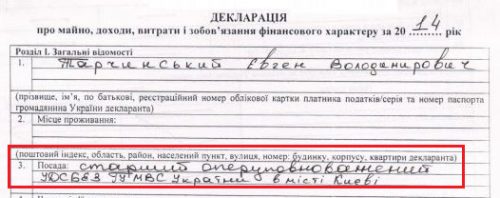 ДЕКЛАРАЦІЯ
про майно, доходи, витрати і зобов'язання фінансового характеру за 20 14 рік
Розділ І. Загальні відомості
1. Тарчинський Євген Володимирович
(прізвище, ім'я, по батькові, реєстраційний номер облікової картки платника податків/серія та номер паспорта
громадянина України декларанта)
2. Місце проживання:
(поштовий індекс, область, район, населений пункт, вулиця, номер: будинку, корпусу, квартири декларанта)
3. Посада: старший оперуповноважений
УДСБЕЗ ГУМВС України в місті Києві